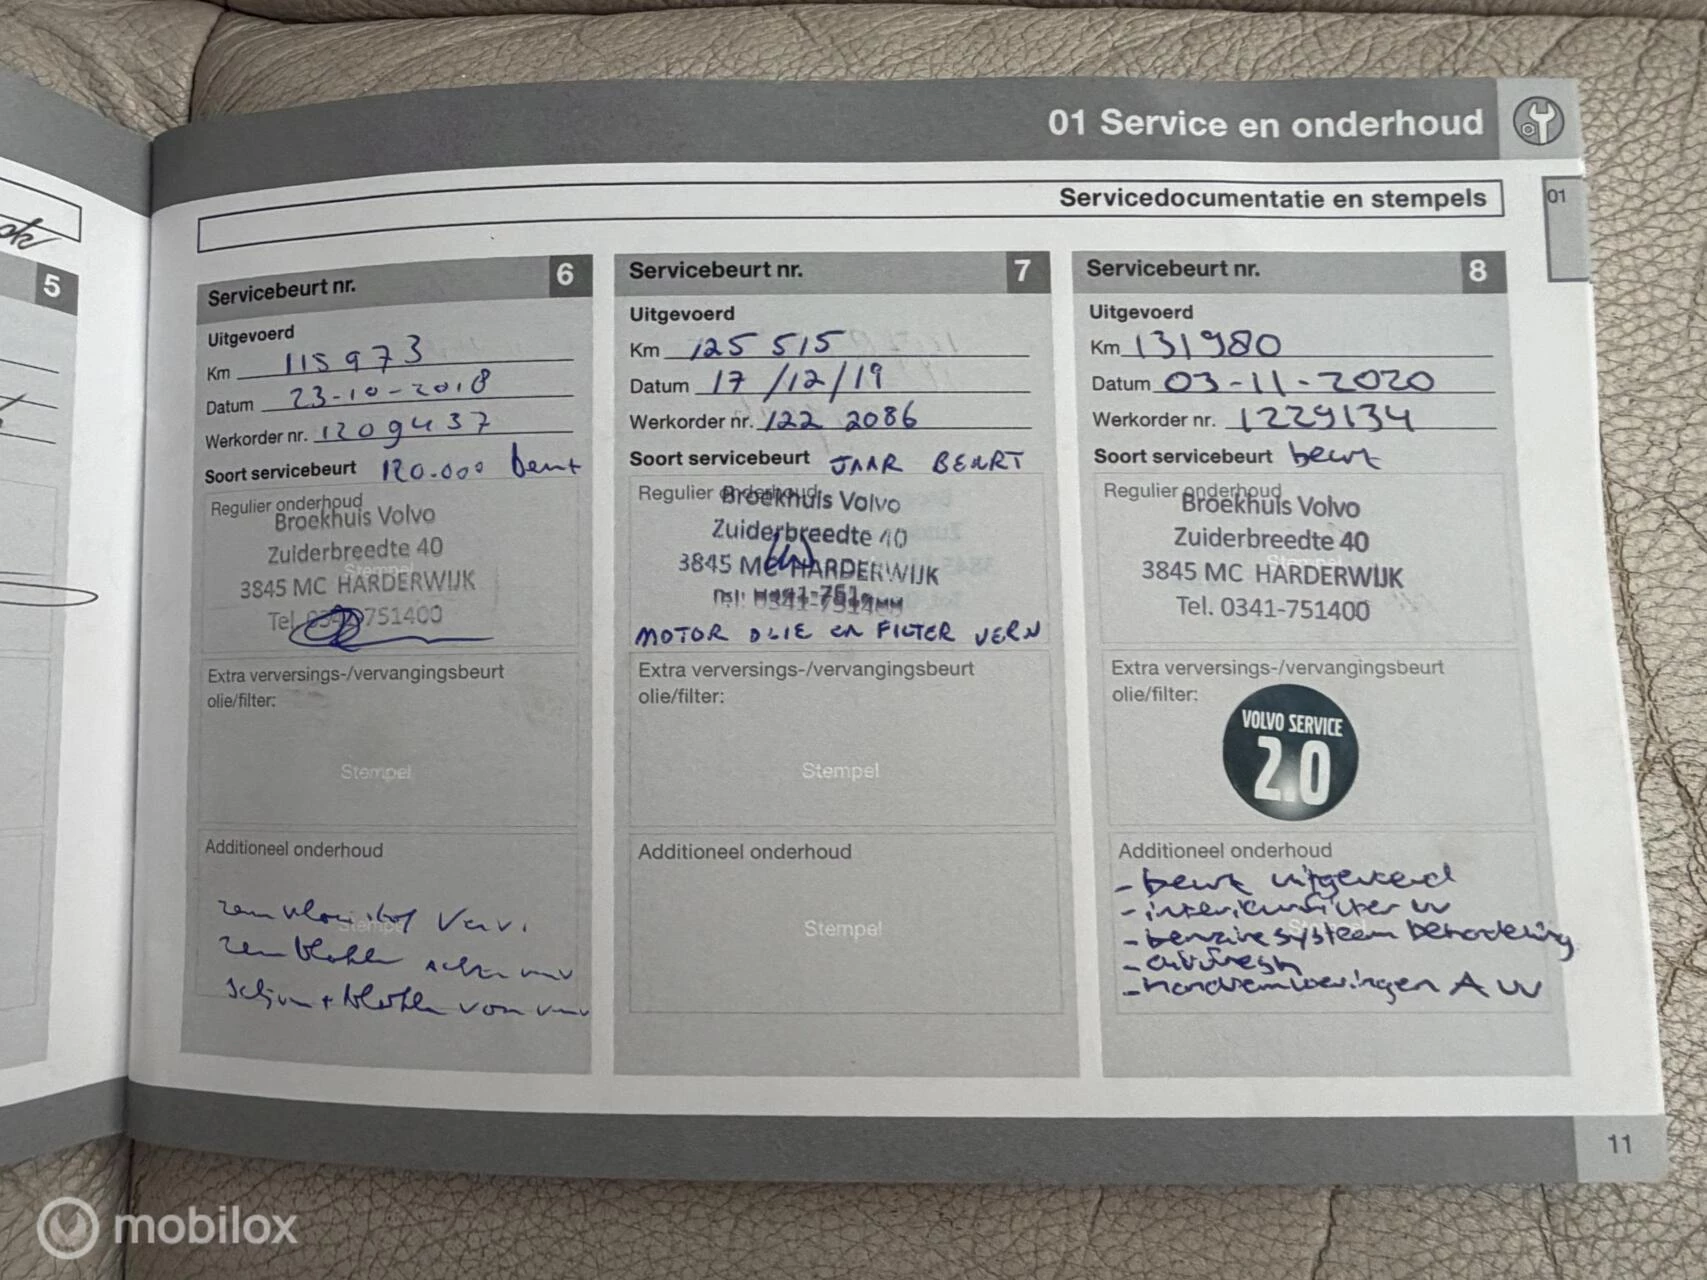 01 Service en onderhoud
Servicedocumentatie en stempels
01
ok
5
Servicebeurt nr. 6
Uitgevoerd
Km 115973
Datum 23-10-2018
Werkorder nr. 1209437
Soort servicebeurt 120.000 beurt
Regulier onderhoud
Broekhuis Volvo
Zuiderbreedte 40
Stempel
3845 MC HARDERWIJK
Tel. 0341-751400
Extra verversings-/vervangingsbeurt
olie/filter:
Stempel
Additioneel onderhoud
Stempel
remvloeistof Verv.
remblokken achter verv
schijven + blokken voor verv
Servicebeurt nr. 7
Uitgevoerd
Km 125 515
Datum 17/12/19
Werkorder nr. 122 2086
Soort servicebeurt JAAR BEURT
Regulier onderhoud
Broekhuis Volvo
Zuiderbreedte 40
3845 MC HARDERWIJK
Tel. 0341-751400
MOTOR OLIE en FILTER VERV
Extra verversings-/vervangingsbeurt
olie/filter:
Stempel
Additioneel onderhoud
Stempel
Servicebeurt nr. 8
Uitgevoerd
Km 131980
Datum 03-11-2020
Werkorder nr. 1229134
Soort servicebeurt beurt
Regulier onderhoud
Broekhuis Volvo
Zuiderbreedte 40
Stempel
3845 MC HARDERWIJK
Tel. 0341-751400
Extra verversings-/vervangingsbeurt
olie/filter:
VOLVO SERVICE
2.0
Additioneel onderhoud
- beurt uitgevoerd
- interieurfilter vv
- benzine systeem behandeling
- airfresh
- handremvoeringen A vv
11
mobilox